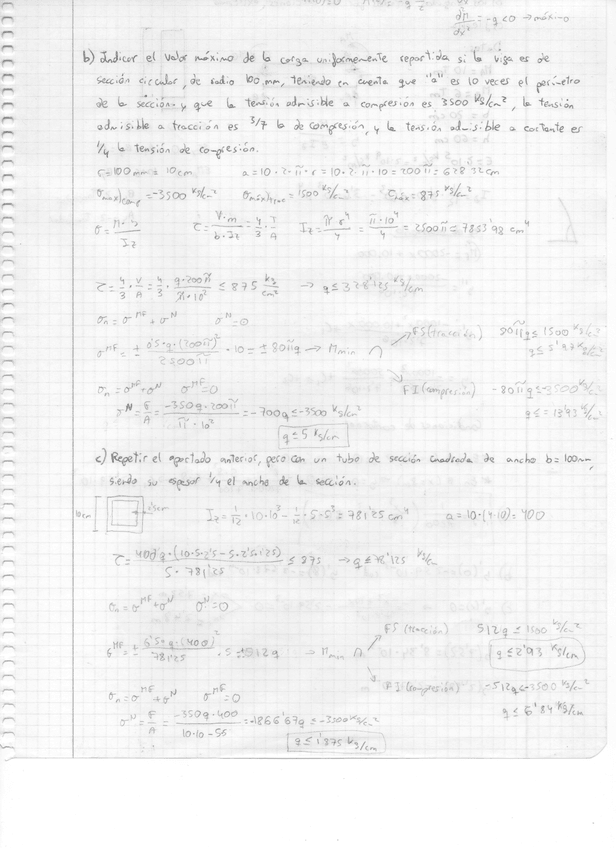 = -g < 0 → máximo
b) Indicar el valor máximo de la carga uniformemente repartida si la viga es de
sección circular, de radio 100 mm, teniendo en cuenta que "a" es 10 veces el perímetro
de la sección y que la tensión admisible a compresión es 3500 Kg/cm², la tensión
admisible a tracción es 3/7 la de compresión, y la tensión admisible a cortante es
1/4 la tensión de compresión.
r = 100 mm = 10 cm a = 10·2·π·r = 10·2·π·10 = 200π = 628'32 cm
σmáx)comp = -3500 Kg/cm² σmáx)trac = 1500 Kg/cm² τmáx = 875 Kg/cm²
τ = V·m / b·Iz = 4/3 V/A Iz = π·r⁴/4 = π·10⁴/4 = 2500π = 7853'98 cm⁴
τ = 4/3 · V/A = 4/3 · q·200π / π·10² ≤ 875 Kg/cm² → q ≤ 328'125 Kg/cm
σn = σMF + σN σN = 0
FS (tracción) 80πq ≤ 1500 Kg/cm²
σMF = ± 0'5·q·(200π)² / 2500π · 10 = ± 80πq → Mmin ∩
q ≤ 5'97 Kg/cm
σn = σMF + σN σMF = 0
FI (compresión) -80πq ≤ -3500 Kg/cm²
σN = F/A = -350q·200π / π·10² = -700q ≤ -3500 Kg/cm²
q ≤ = 13'93 Kg/cm
q ≤ 5 Kg/cm
c) Repetir el apartado anterior, pero con un tubo de sección cuadrada de ancho b = 100 mm,
siendo su espesor 1/4 el ancho de la sección.
10 cm 2'5 cm Iz = 1/12 · 10·10³ - 1/12 · 5·5³ = 781'25 cm⁴ a = 10·(4·10) = 400
τ = 400q·(10·5·2'5 - 5·2'5·1'25) / 5·781'25 ≤ 875 → q ≤ 78'125 Kg/cm
σn = σMF + σN σN = 0
FS (tracción) 512q ≤ 1500 Kg/cm²
σMF = ± 0'5·q·(400)² / 781'25 · 5 = ± 512q → Mmin ∩
q ≤ 2'93 Kg/cm
σn = σMF + σN σMF = 0
FI (compresión) -512q ≤ -3500 Kg/cm²
q ≤ 6'84 Kg/cm
σN = F/A = -350q·400 / 10·10-5·5 = -1866'67q ≤ -3500 Kg/cm²
q ≤ 1'875 Kg/cm